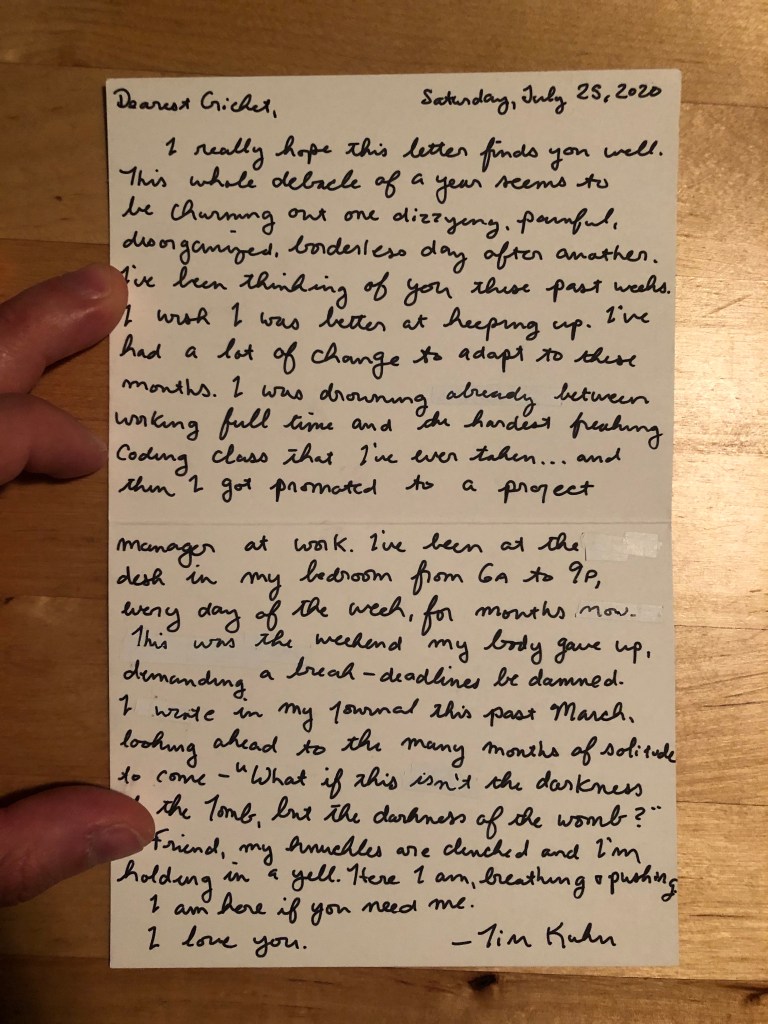 Dearest Cricket,
Saturday, July 25, 2020
I really hope this letter finds you well.
This whole debacle of a year seems to
be churning out one dizzying, painful,
disorganized, borderless day after another.
I've been thinking of you these past weeks.
I wish I was better at keeping up. I've
had a lot of change to adapt to these
months. I was drowning already between
working full time and the hardest freaking
coding class that I've ever taken... and
then I got promoted to a project
manager at work. I've been at the
desk in my bedroom from 6a to 9p,
every day of the week, for months now.
This was the weekend my body gave up,
demanding a break – deadlines be damned.
I wrote in my journal this past March,
looking ahead to the many months of solitude
to come – "What if this isn't the darkness
the Tomb, but the darkness of the womb?"
Friend, my knuckles are clenched and I'm
holding in a yell. Here I am, breathing & pushing
I am here if you need me.
I love you. – Tim Kuhn